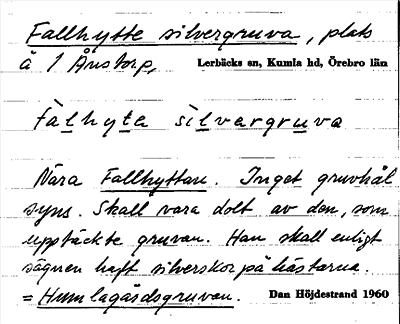 Fallhytte silvergruva, plats
å 1 Ånstorp, Lerbäcks sn, Kumla hd, Örebro län
fàlhyta sìlvargruva
Nära Fallhyttan. Inget gruvhål
syns. Skall vara dolt av den, som
upptäckte gruvan. Han skall enligt
sägnen haft silverskor på hästarna.
= Humlagårdsgruvan. Dan Höjdestrand 1960